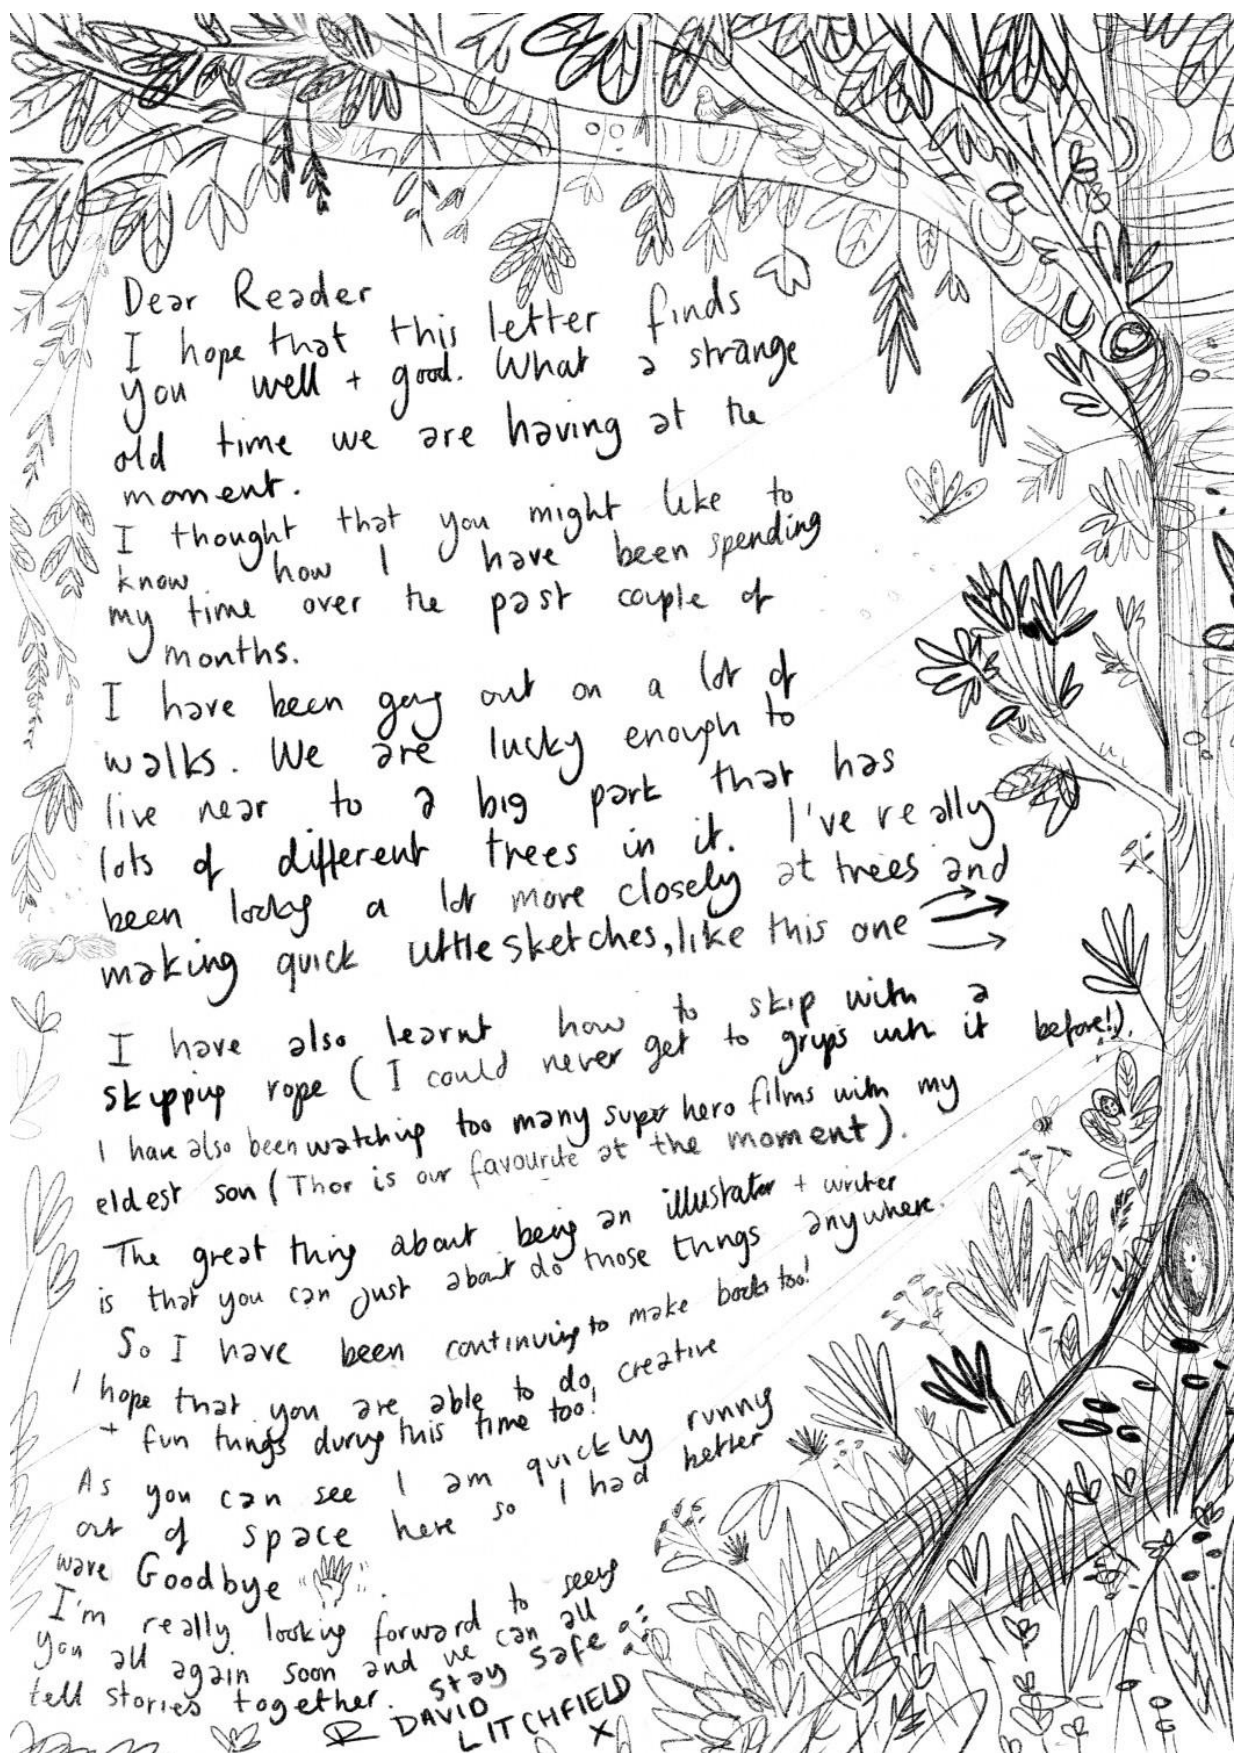 Dear Reader
I hope that this letter finds
you well + good. What a strange
old time we are having at the
moment.
I thought that you might like to
know how I have been spending
my time over the past couple of
months.
I have been going out on a lot of
walks. We are lucky enough to
live near to a big park that has
lots of different trees in it. I've really
been looking a lot more closely at trees and
making quick little sketches, like this one
I have also learnt how to skip with a
skipping rope (I could never get to grips with it before!).
I have also been watching too many super hero films with my
eldest son (Thor is our favourite at the moment).
The great thing about being an illustrator + writer
is that you can just about do those things anywhere.
So I have been continuing to make books too!
I hope that you are able to do creative
+ fun things during this time too!
As you can see I am quickly running
out of space here so I had better
wave Goodbye
I'm really looking forward to seeing
you all again soon and we can all
tell stories together. Stay safe
DAVID
LITCHFIELD
X